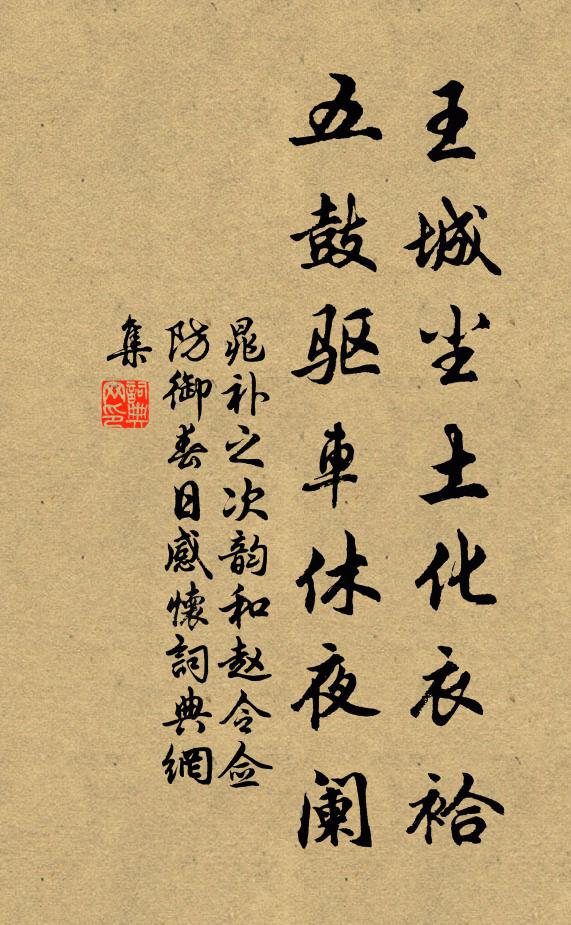 王城尘土化衣袷
五鼓驱車休夜阑
晁补之次韵和赵令佥
防御春日感懷詞典網
集
詞典
网印